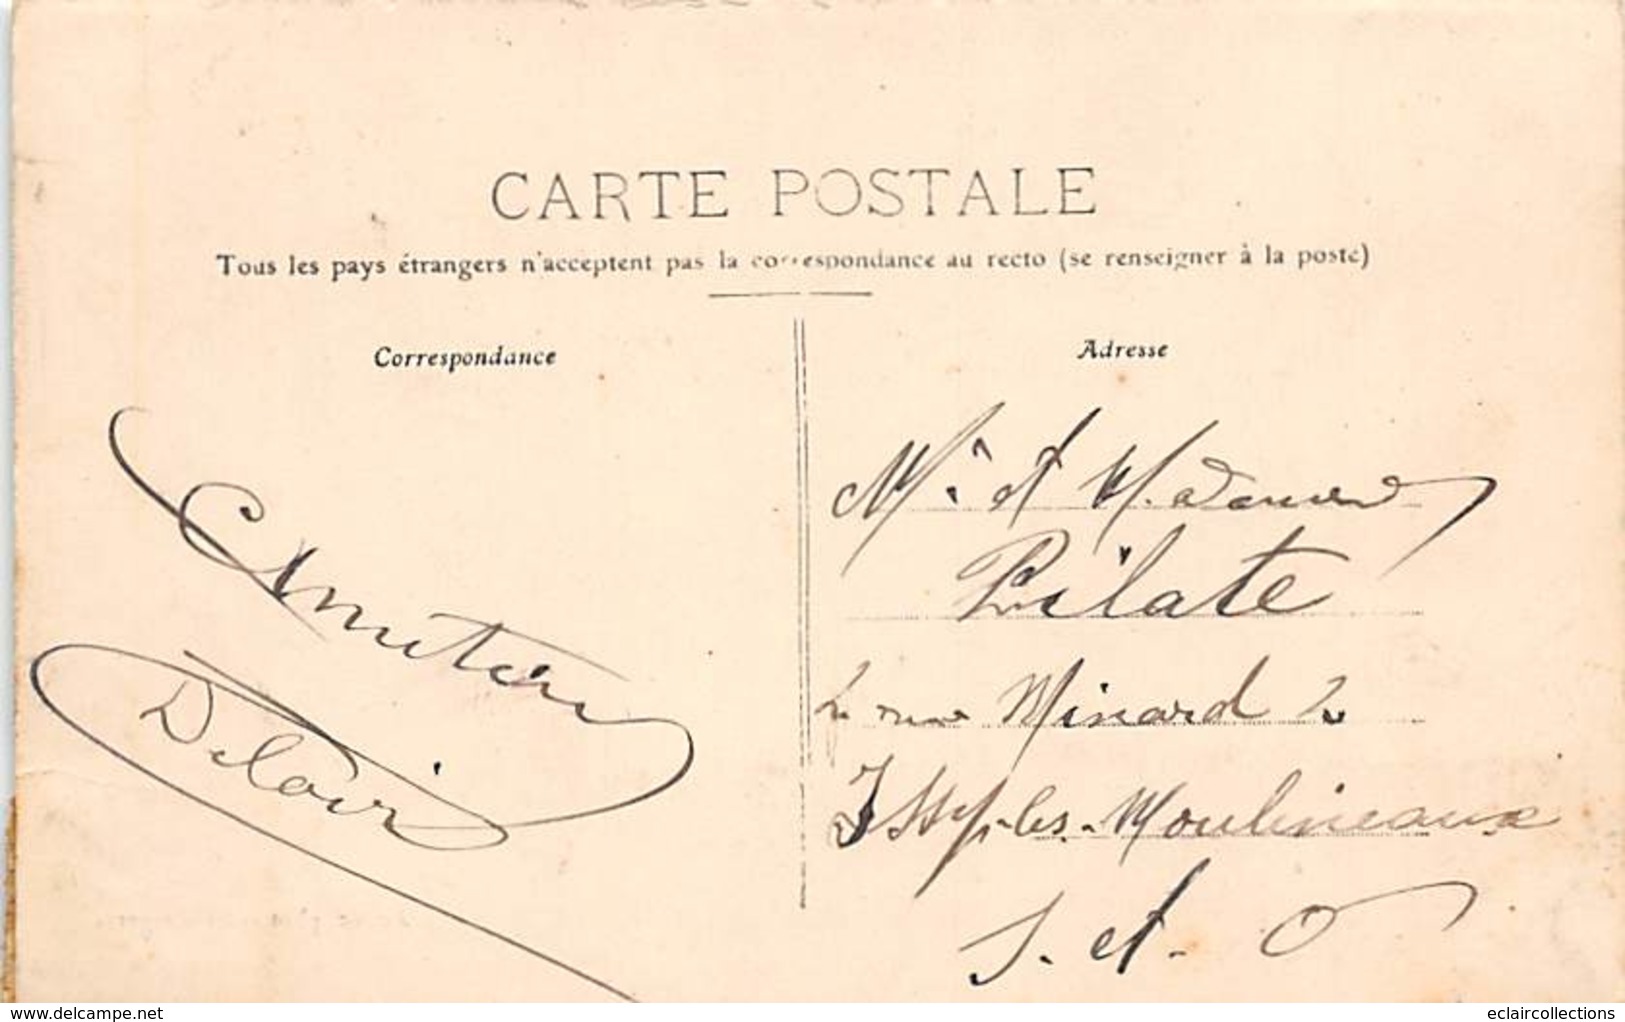 CARTE POSTALE
Tous les pays étrangers n'acceptent pas la correspondance au recto (se renseigner à la poste)
Correspondance
Adresse
Mr et Madame
Pilate
2 rue Minard 2
Issy-les-Moulineaux
S. et. O
Amitiés
www.delcampe.net
eclaircollections